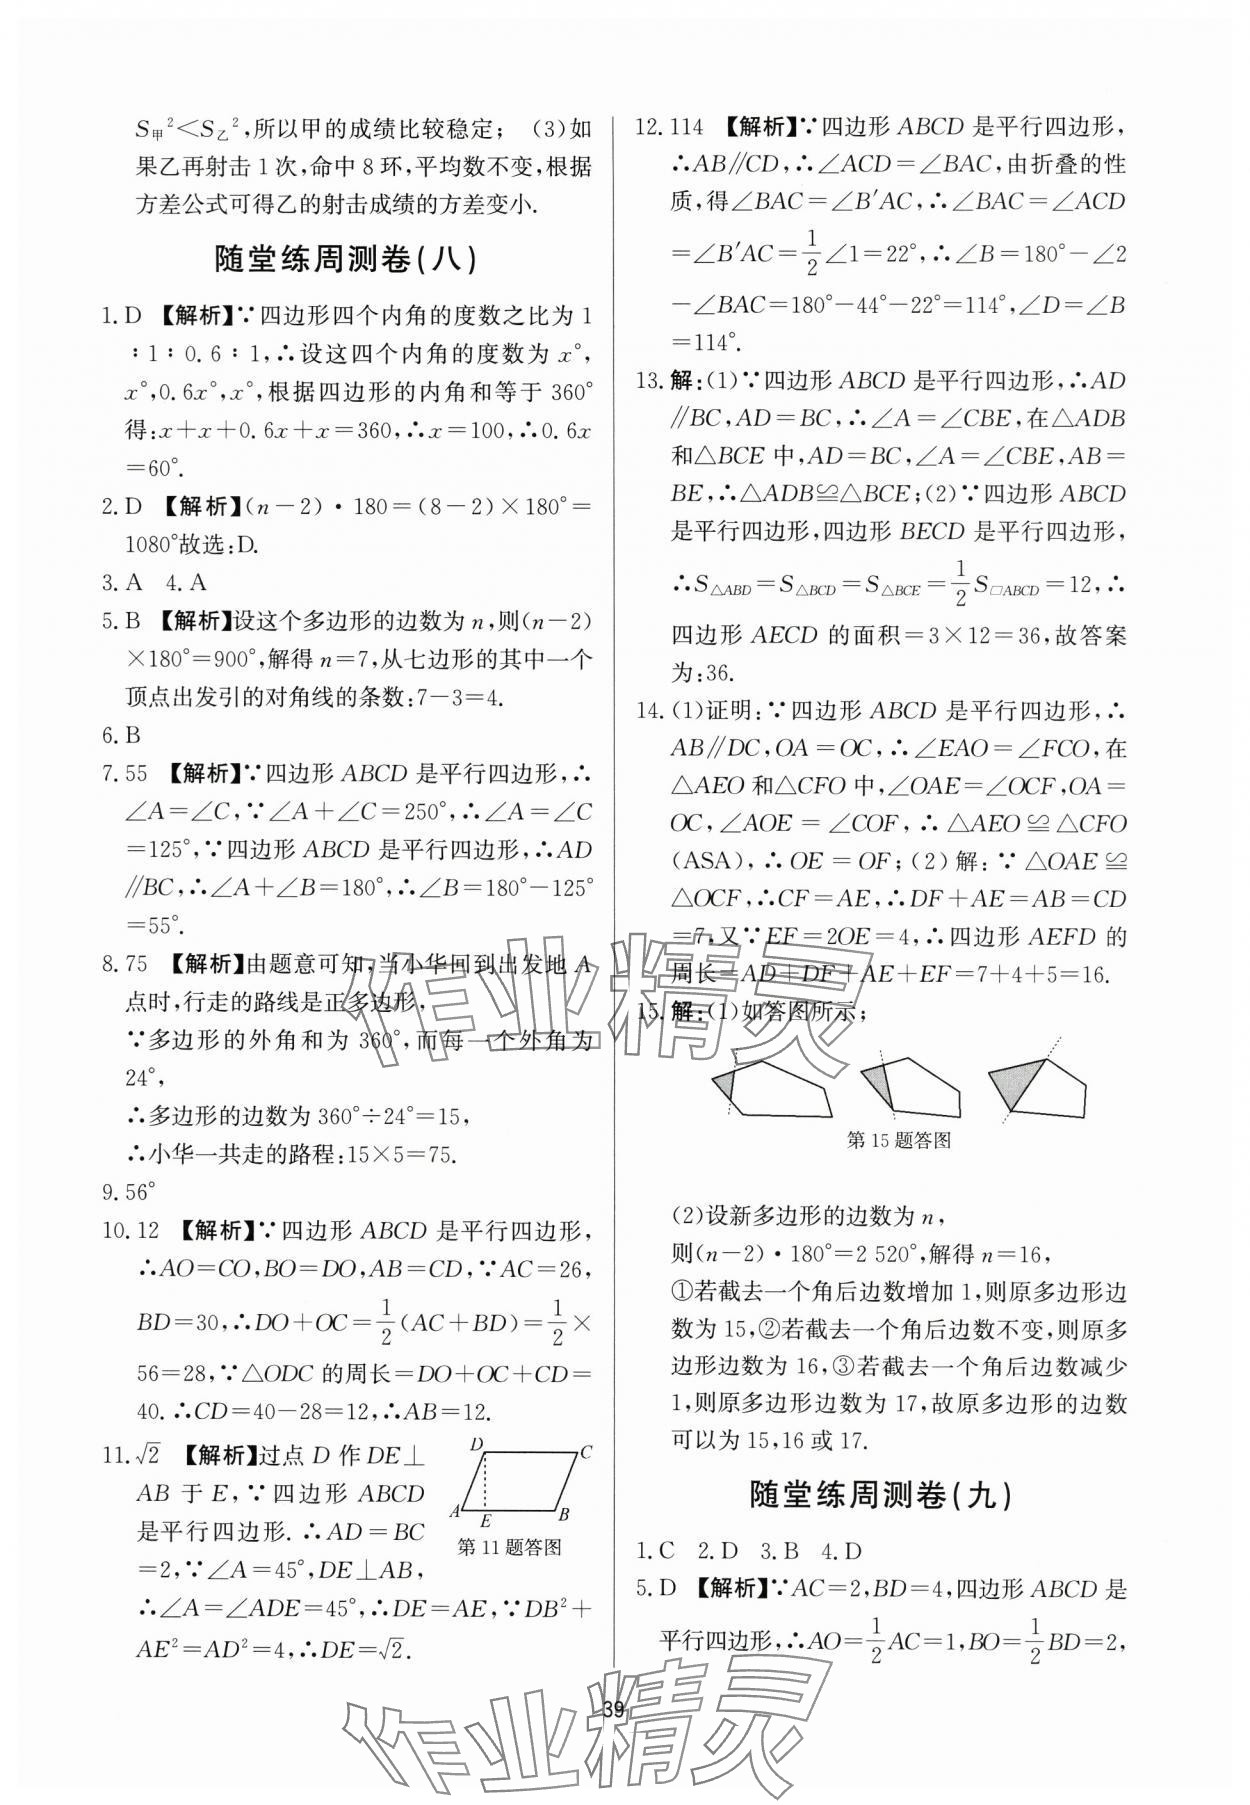 S甲²＜S乙²,所以甲的成绩比较稳定； (3)如
果乙再射击1次,命中8环,平均数不变,根据
方差公式可得乙的射击成绩的方差变小.
随堂练周测卷(八)
1. D 【解析】∵四边形四个内角的度数之比为1
∶1∶0.6∶1,∴设这四个内角的度数为x°,
x°,0.6x°,x°,根据四边形的内角和等于360°
得:x＋x＋0.6x＋x＝360,∴x＝100,∴0.6x
＝60°.
2. D 【解析】(n－2)·180＝(8－2)×180°＝
1080°故选:D.
3. A 4. A
5. B 【解析】设这个多边形的边数为n,则(n－2)
×180°＝900°,解得n＝7,从七边形的其中一个
顶点出发引的对角线的条数:7－3＝4.
6. B
7. 55 【解析】∵四边形ABCD是平行四边形,∴
∠A＝∠C,∵∠A＋∠C＝250°,∴∠A＝∠C
＝125°,∵四边形ABCD是平行四边形,∴AD
∥BC,∴∠A＋∠B＝180°,∴∠B＝180°－125°
＝55°.
8. 75 【解析】由题意可知,当小华回到出发地A
点时,行走的路线是正多边形,
∵多边形的外角和为360°,而每一个外角为
24°,
∴多边形的边数为360°÷24°＝15,
∴小华一共走的路程:15×5＝75.
9. 56°
10. 12 【解析】∵四边形ABCD是平行四边形,
∴AO＝CO,BO＝DO,AB＝CD,∵AC＝26,
BD＝30,∴DO＋OC＝1/2(AC＋BD)＝1/2×
56＝28,∵△ODC的周长＝DO＋OC＋CD＝
40.∴CD＝40－28＝12,∴AB＝12.
11. √2 【解析】过点D作DE⊥
AB于E,∵四边形ABCD
是平行四边形.∴AD＝BC
＝2,∵∠A＝45°,DE⊥AB,
∴∠A＝∠ADE＝45°,∴DE＝AE,∵DB²＋
AE²＝AD²＝4,∴DE＝√2.
D C
A E B
第11题答图
12. 114 【解析】∵四边形ABCD是平行四边形,
∴AB∥CD,∴∠ACD＝∠BAC,由折叠的性
质,得∠BAC＝∠B′AC,∴∠BAC＝∠ACD
＝∠B′AC＝1/2∠1＝22°,∴∠B＝180°－∠2
－∠BAC＝180°－44°－22°＝114°,∠D＝∠B
＝114°.
13. 解:(1)∵四边形ABCD是平行四边形,∴AD
∥BC,AD＝BC,∴∠A＝∠CBE,在△ADB
和△BCE中,AD＝BC,∠A＝∠CBE,AB＝
BE,∴△ADB≌△BCE;(2)∵四边形ABCD
是平行四边形,四边形BECD是平行四边形,
∴S△ABD＝S△BCD＝S△BCE＝1/2S□ABCD＝12,∴
四边形AECD的面积＝3×12＝36,故答案
为:36.
14. (1)证明:∵四边形ABCD是平行四边形,∴
AB∥DC,OA＝OC,∴∠EAO＝∠FCO,在
△AEO和△CFO中,∠OAE＝∠OCF,OA＝
OC,∠AOE＝∠COF,∴△AEO≌△CFO
(ASA),∴OE＝OF;(2)解:∵△OAE≌
△OCF,∴CF＝AE,∴DF＋AE＝AB＝CD
＝7,又∵EF＝2OE＝4,∴四边形AEFD的
周长＝AD＋DF＋AE＋EF＝7＋4＋5＝16.
15. 解:(1)如答图所示;
第15题答图
(2)设新多边形的边数为n,
则(n－2)·180°＝2 520°,解得n＝16,
①若截去一个角后边数增加1,则原多边形边
数为15,②若截去一个角后边数不变,则原多
边形边数为16,③若截去一个角后边数减少
1,则原多边形边数为17,故原多边形的边数
可以为15,16或17.
随堂练周测卷(九)
1. C 2. D 3. B 4. D
5. D 【解析】∵AC＝2,BD＝4,四边形ABCD是
平行四边形,∴AO＝1/2AC＝1,BO＝1/2BD＝2,
39
作业精灵
作业精灵